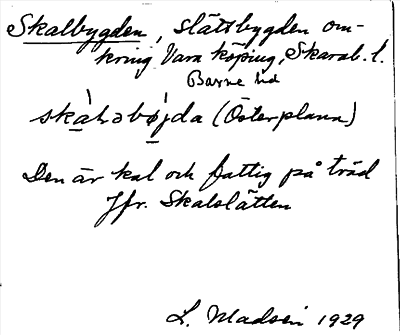 Skalbygden, slätsbygden om-
kring Vara köping, Skarab. l.
Barne hd
skàlsbö̀jda (Österplana)
Den är kal och fattig på träd
Jfr. Skalslätten
L. Madsén 1929